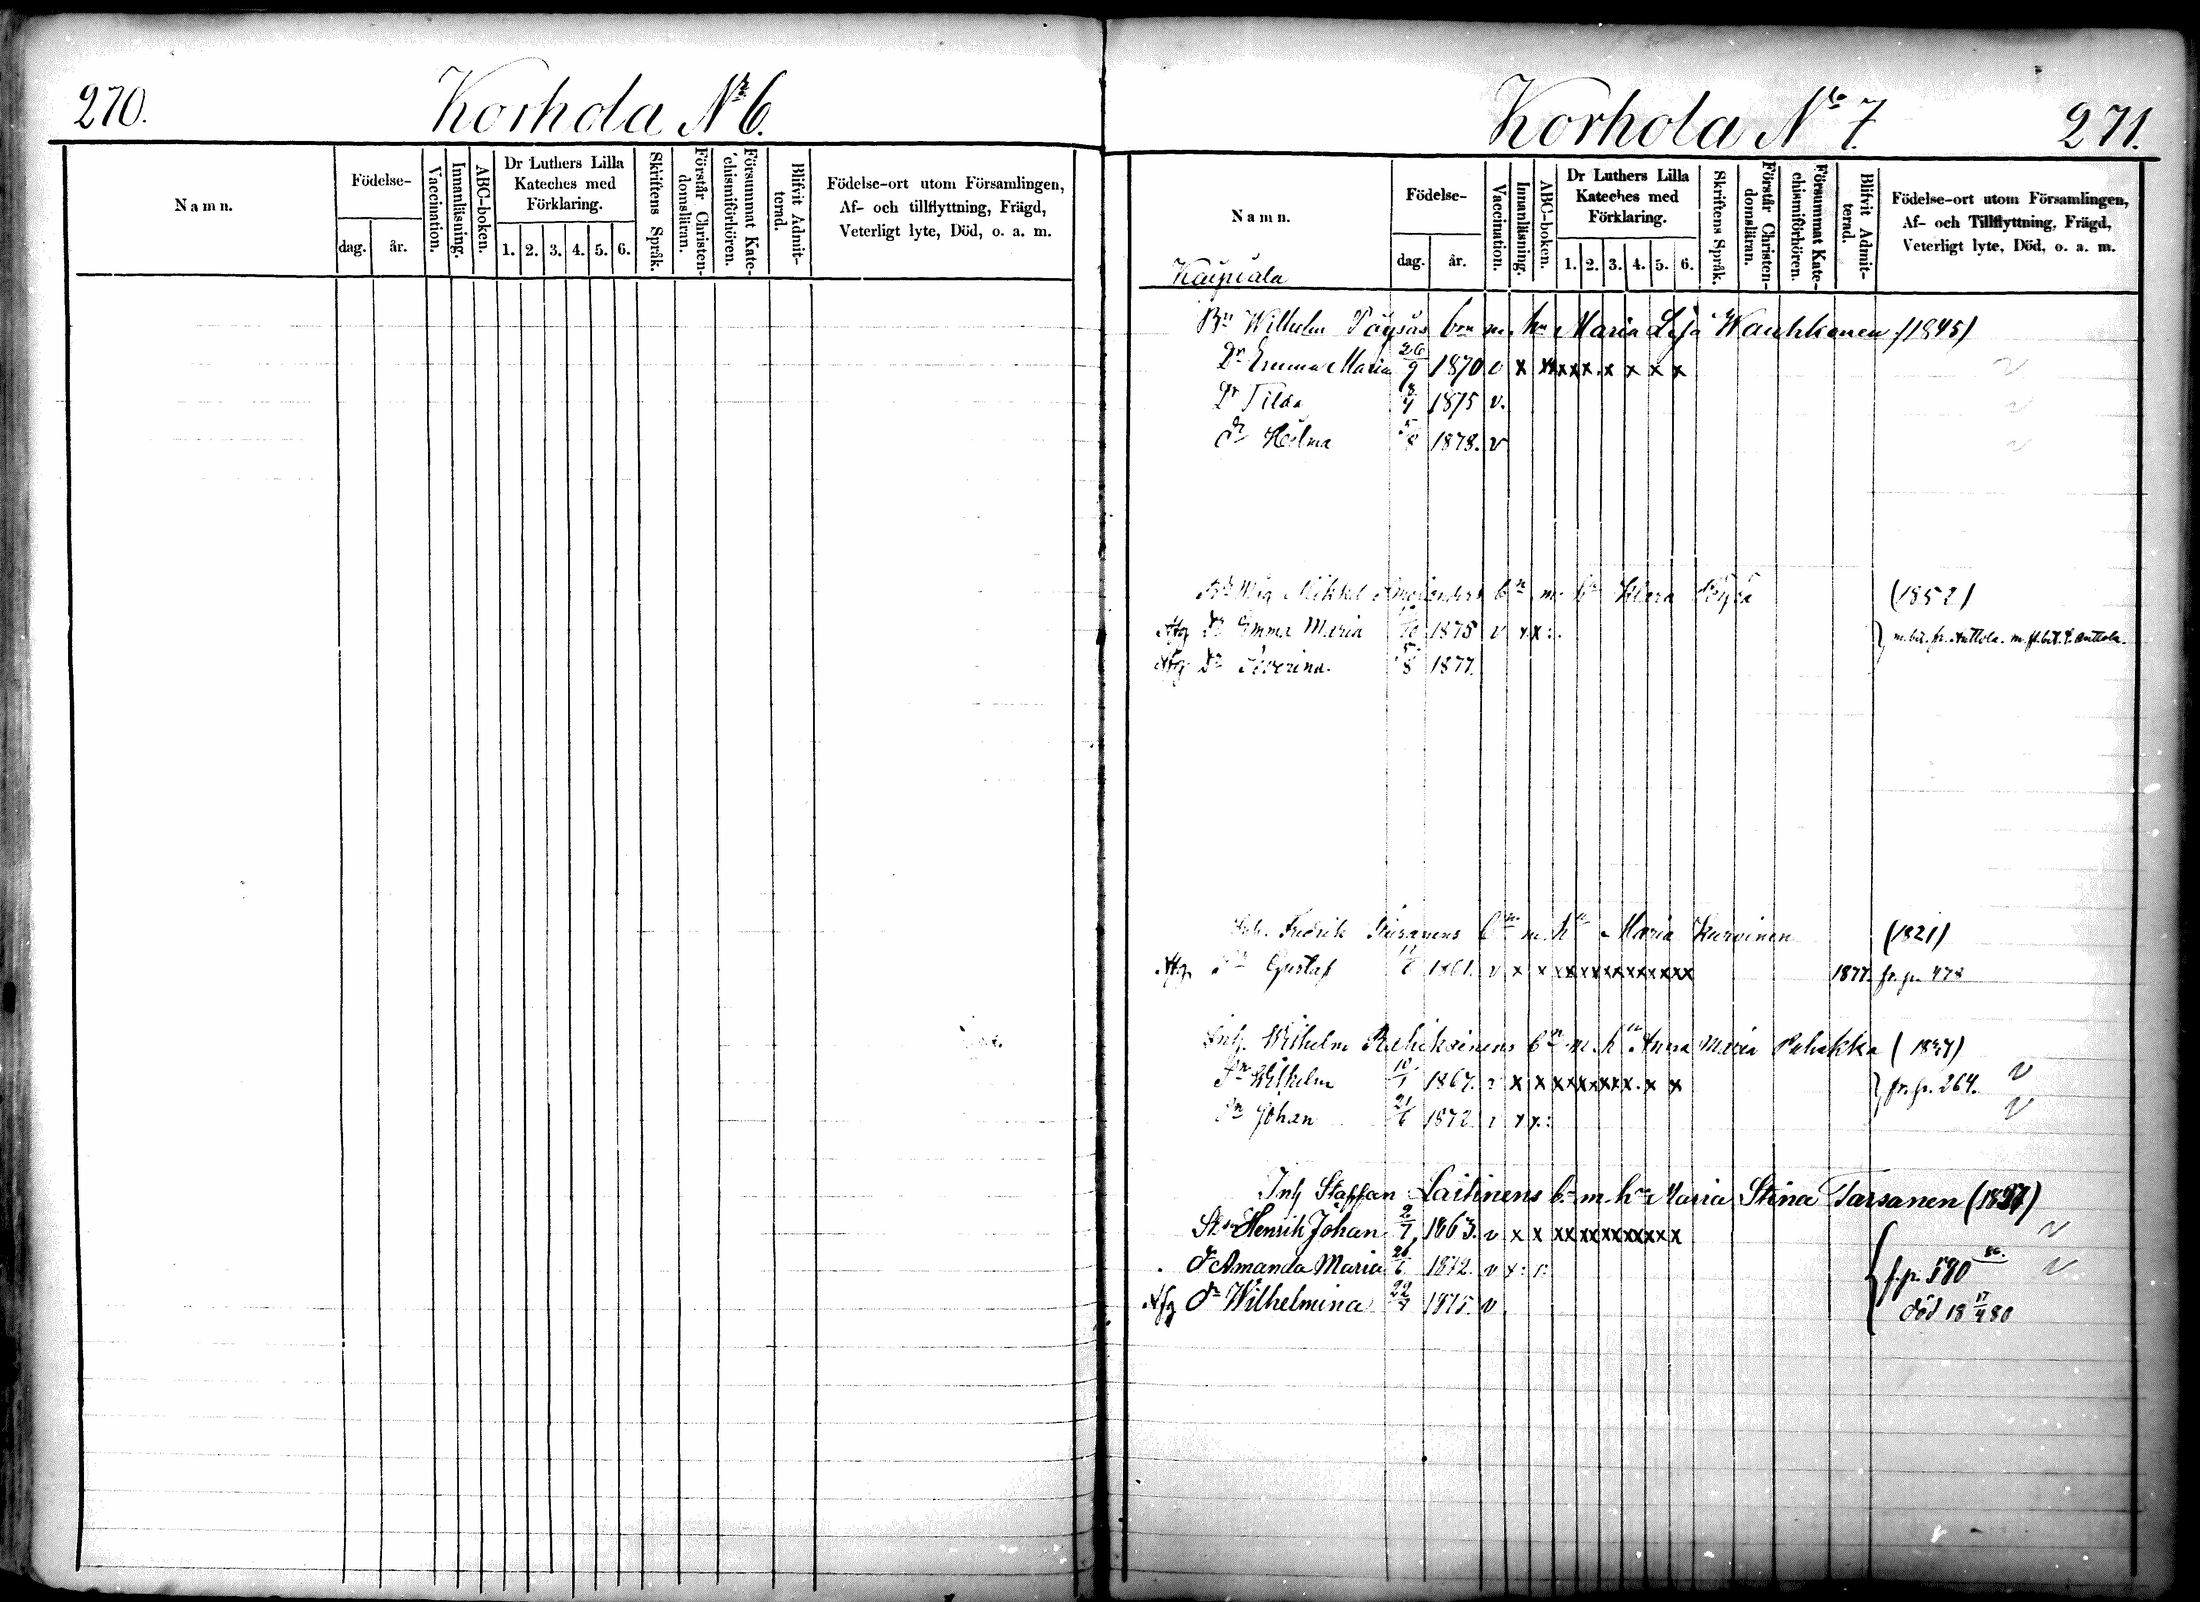 270.
Korhola No 6.
Namn.
Födelse-
dag.
år.
Vaccination.
Innanläsning.
ABC-boken.
Dr Luthers Lilla
Kateches med
Förklaring.
1. 2. 3. 4. 5. 6.
Skriftens Språk.
Förstår Christen-
domsläran.
Försummat Kate-
chismiförhören.
Blifvit Admit-
terad.
Födelse-ort utom Församlingen,
Af- och tillflyttning, Frägd,
Veterligt lyte, Död, o. a. m.
Korhola No 7.
271.
Namn.
Födelse-
dag.
år.
Vaccination.
Innanläsning.
ABC-boken.
Dr Luthers Lilla
Kateches med
Förklaring.
1. 2. 3. 4. 5. 6.
Skriftens Språk.
Förstår Christen-
domsläran.
Försummat Kate-
chismiförhören.
Blifvit Admit-
terad.
Födelse-ort utom Församlingen,
Af- och Tillflyttning, Frägd,
Veterligt lyte, Död, o. a. m.
Bn Wilhelm Pöysäs bn m. hn Maria Lisa Wauhkonen (1845)
Dr Emma Maria 26/9 1870 v x xxxxx. x x x x
Dr Tilda 1875 v.
Dr Helma 1878. v
Mikkel bn m. hn Klara (1852)
Afg Dr Emma Maria 1875 v x x
m. bet. fr. Anttola. m. fl. bet. t. Anttola.
Afg Dr Severina. 5/8 1877.
Fredrik bn m. hn Maria Kurvinen (1821)
Afg Gustaf 1861. v x x xxxxxxxxxxxx 1877. fr. p. 478
Inh. Wilhelm bn m. hn Anna Maria Puhakka
Sn Wilhelm 1867. v x x xxxxxxx. x x
fr. p. 264. v
Sn Johan 21/6 1872 v x x: v
Inh Staffan Laitinens bn m. hn Maria Stina Tarsanen
Henrik Johan 2/7 1863. v x x xxxxxxxxxxx v
Dr Amanda Maria 26/6 1872. v x: f. p. 590 v
Afg Dr Wilhelmina 1875. v död 18 17/4 80